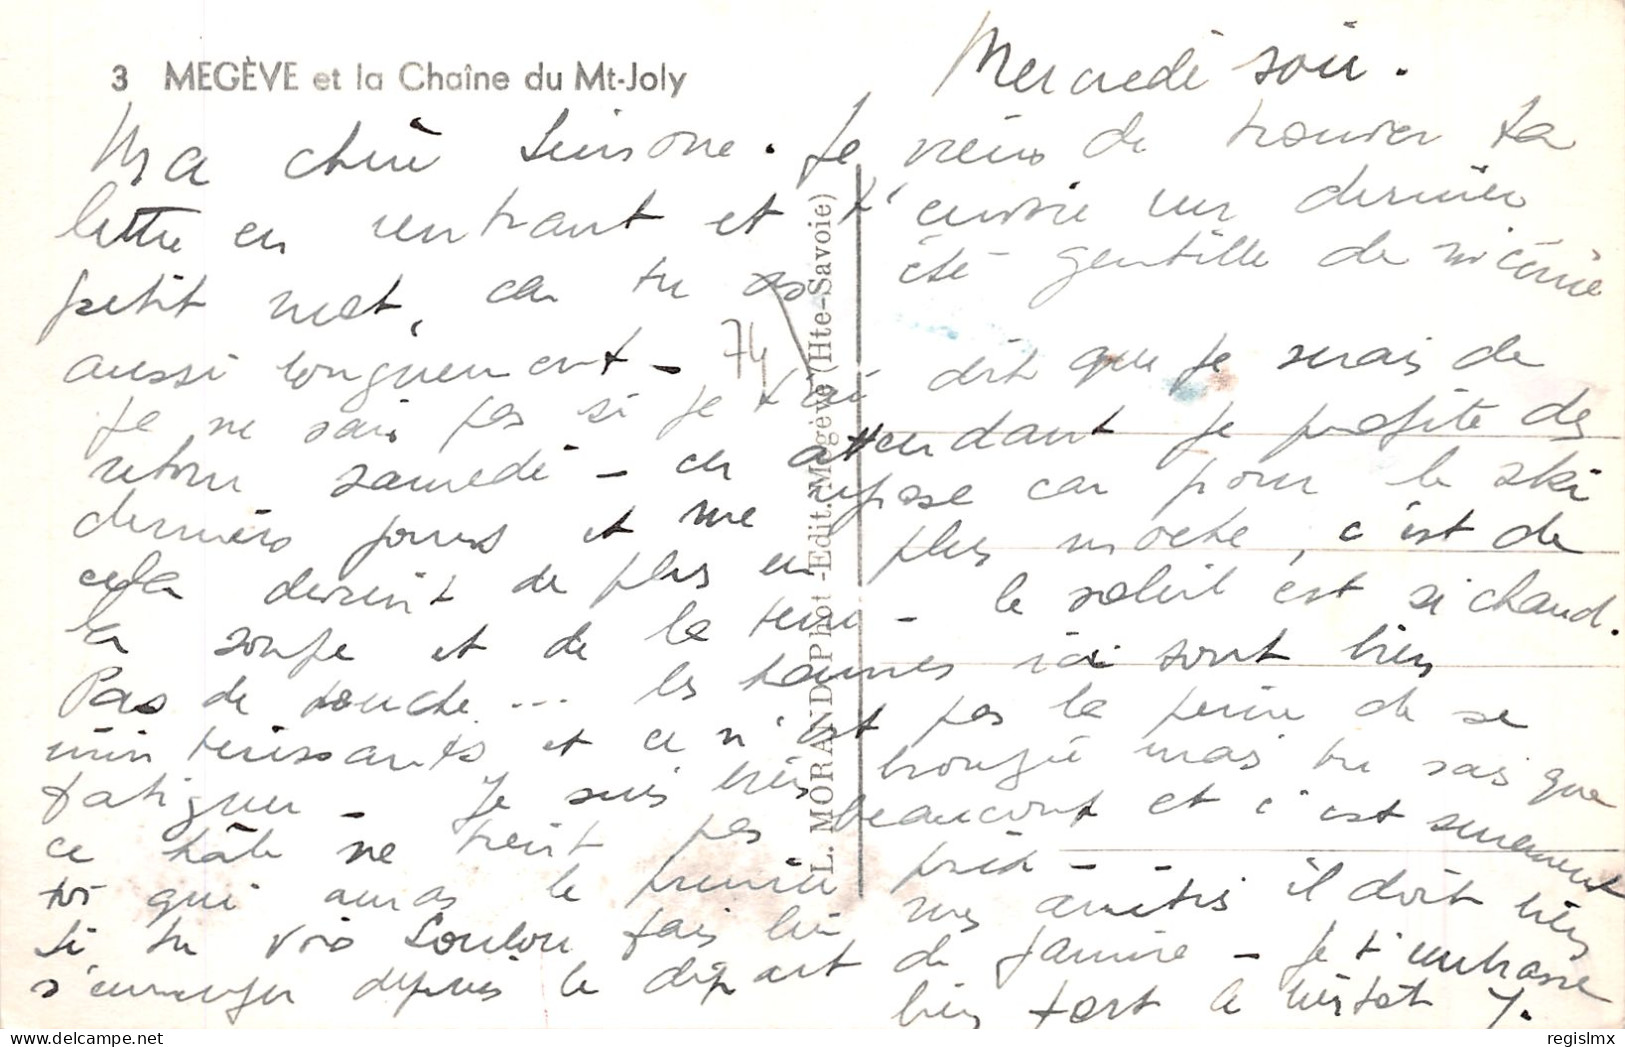 3 MEGÈVE et la Chaîne du Mt-Joly
Mercredi soir.
Ma chère Simone. Je viens de trouver ta
lettre en rentrant et t'envoie un dernier
petit mot, car tu as été gentille de m'écrire
aussi longuement -
Je ne sais pas si je t'ai dit que je serais de
retour samedi - en attendant je profite des
derniers jours et me repose car pour le ski
cela devient de plus en plus moche, c'est de
la soupe et de la terre - le soleil est si chaud.
Pas de touche ... les hommes ici sont bien
inintéressants et ce n'est pas la peine de se
fatiguer - Je suis très bronzée mais tu sais que
ce hâle ne tient pas beaucoup et c'est sûrement
toi qui auras le premier prix -
Si tu vois Loulou fais lui mes amitiés il doit bien
s'ennuyer depuis le départ de Janine - Je t'embrasse
bien fort à bientôt Y.
74
L. MORAND Phot-Edit. Megève (Hte-Savoie)
regislmx